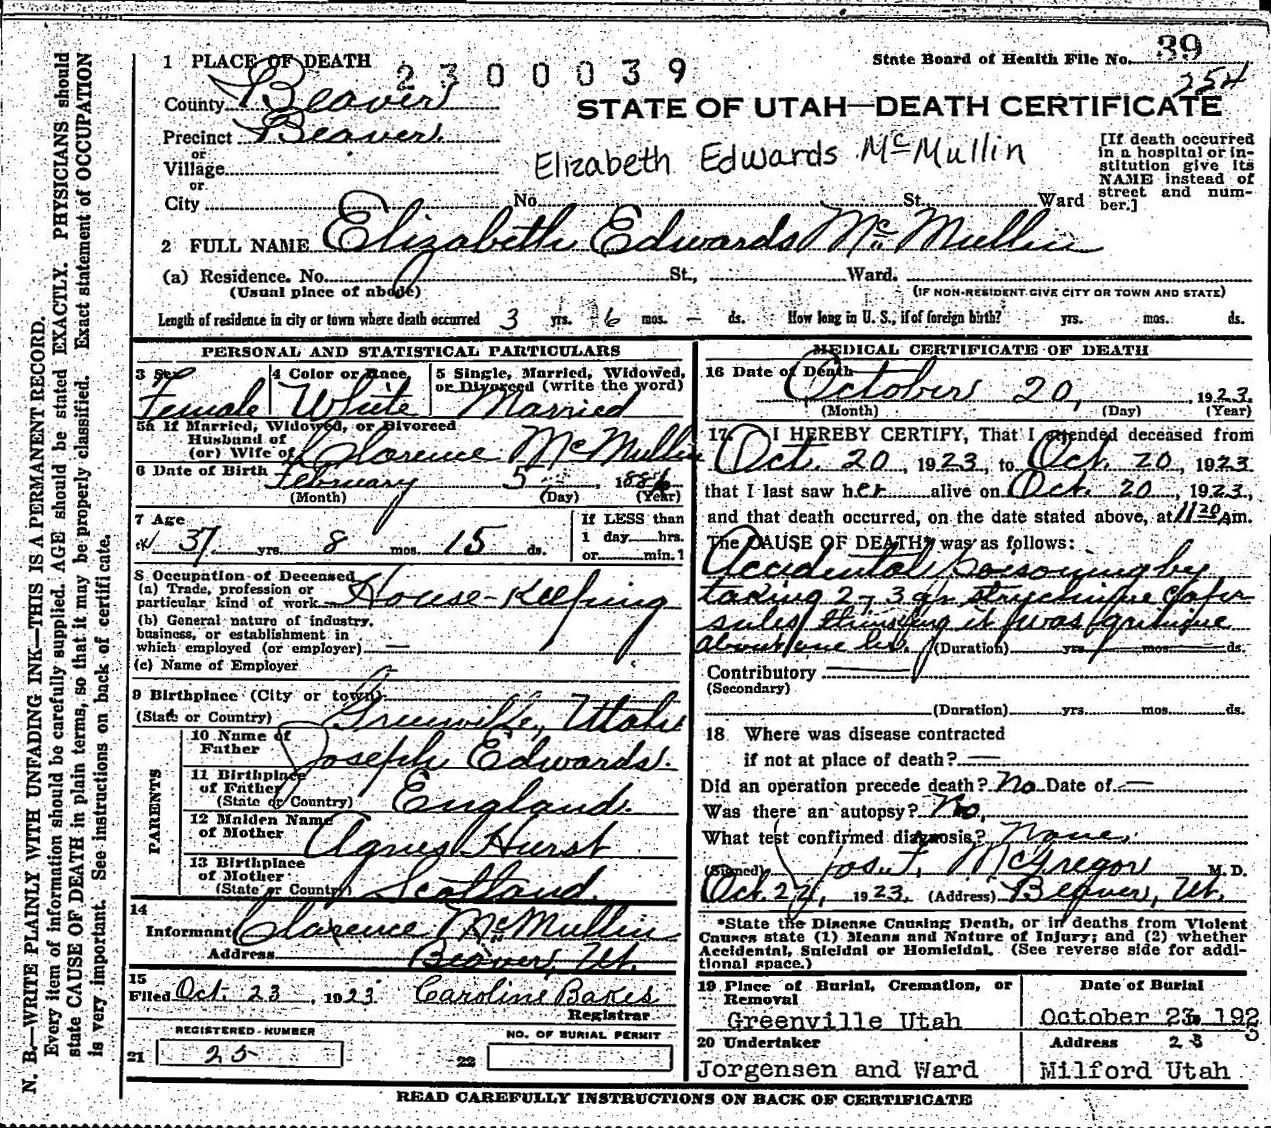 1 PLACE OF DEATH
2300039
State Board of Health File No. 39
254
County Beaver
STATE OF UTAH—DEATH CERTIFICATE
Precinct Beaver
or
Village
or
City No. St. Ward
Elizabeth Edwards McMullin
[If death occurred
in a hospital or in-
stitution give its
NAME instead of
street and num-
ber.]
2 FULL NAME Elizabeth Edwards McMullin
(a) Residence. No. St., Ward.
(Usual place of abode) (IF NON-RESIDENT GIVE CITY OR TOWN AND STATE)
Length of residence in city or town where death occurred 3 yrs. 6 mos. — ds. How long in U. S., if of foreign birth? yrs. mos. ds.
PERSONAL AND STATISTICAL PARTICULARS
3 Sex 4 Color or Race 5 Single, Married, Widowed,
or Divorced (write the word)
Female White Married
5a If Married, Widowed, or Divorced
Husband of
(or) Wife of Clarence McMullin
6 Date of Birth February 5 1886
(Month) (Day) (Year)
7 Age
37 yrs. 8 mos. 15 ds.
If LESS than
1 day hrs.
or min.
8 Occupation of Deceased
(a) Trade, profession or
particular kind of work House-Keeping
(b) General nature of industry,
business, or establishment in
which employed (or employer) —
(c) Name of Employer
9 Birthplace (City or town)
(State or Country) Greenville, Utah
PARENTS
10 Name of
Father Joseph Edwards.
11 Birthplace
of Father
(State or Country) England.
12 Maiden Name
of Mother Agnes Hurst
13 Birthplace
of Mother
(State or Country) Scotland.
14
Informant Clarence McMullin
Address Beaver, Ut.
15
Filed Oct. 23, 1923 Caroline Bakes
Registrar
REGISTERED NUMBER NO. OF BURIAL PERMIT
21 25 22
MEDICAL CERTIFICATE OF DEATH
16 Date of Death
October 20, 1923.
(Month) (Day) (Year)
17. I HEREBY CERTIFY, That I attended deceased from
Oct. 20, 1923, to Oct. 20, 1923
that I last saw her alive on Oct. 20, 1923,
and that death occurred, on the date stated above, at 11 20 am.
The CAUSE OF DEATH* was as follows:
Accidental poisoning by
taking 2-3 gr strychnine cap-
sules thinking it was quinine
about one hr. (Duration) yrs. mos. ds.
Contributory —
(Secondary)
(Duration) yrs. mos. ds.
18 Where was disease contracted
if not at place of death? —
Did an operation precede death? No Date of —
Was there an autopsy? No,
What test confirmed diagnosis? None.
(Signed) Jos. F. McGregor M. D.
Oct. 22, 1923. (Address) Beaver, Ut.
*State the Disease Causing Death, or in deaths from Violent
Causes state (1) Means and Nature of Injury; and (2) whether
Accidental, Suicidal or Homicidal. (See reverse side for addi-
tional space.)
19 Place of Burial, Cremation, or
Removal
Date of Burial
Greenville Utah October 23 1923
20 Undertaker Address 23
Jorgensen and Ward Milford Utah
READ CAREFULLY INSTRUCTIONS ON BACK OF CERTIFICATE
N. B.—WRITE PLAINLY WITH UNFADING INK—THIS IS A PERMANENT RECORD.
Every item of information should be carefully supplied. AGE should be stated EXACTLY. PHYSICIANS should
state CAUSE OF DEATH in plain terms, so that it may be properly classified. Exact statement of OCCUPATION
is very important. See instructions on back of certificate.